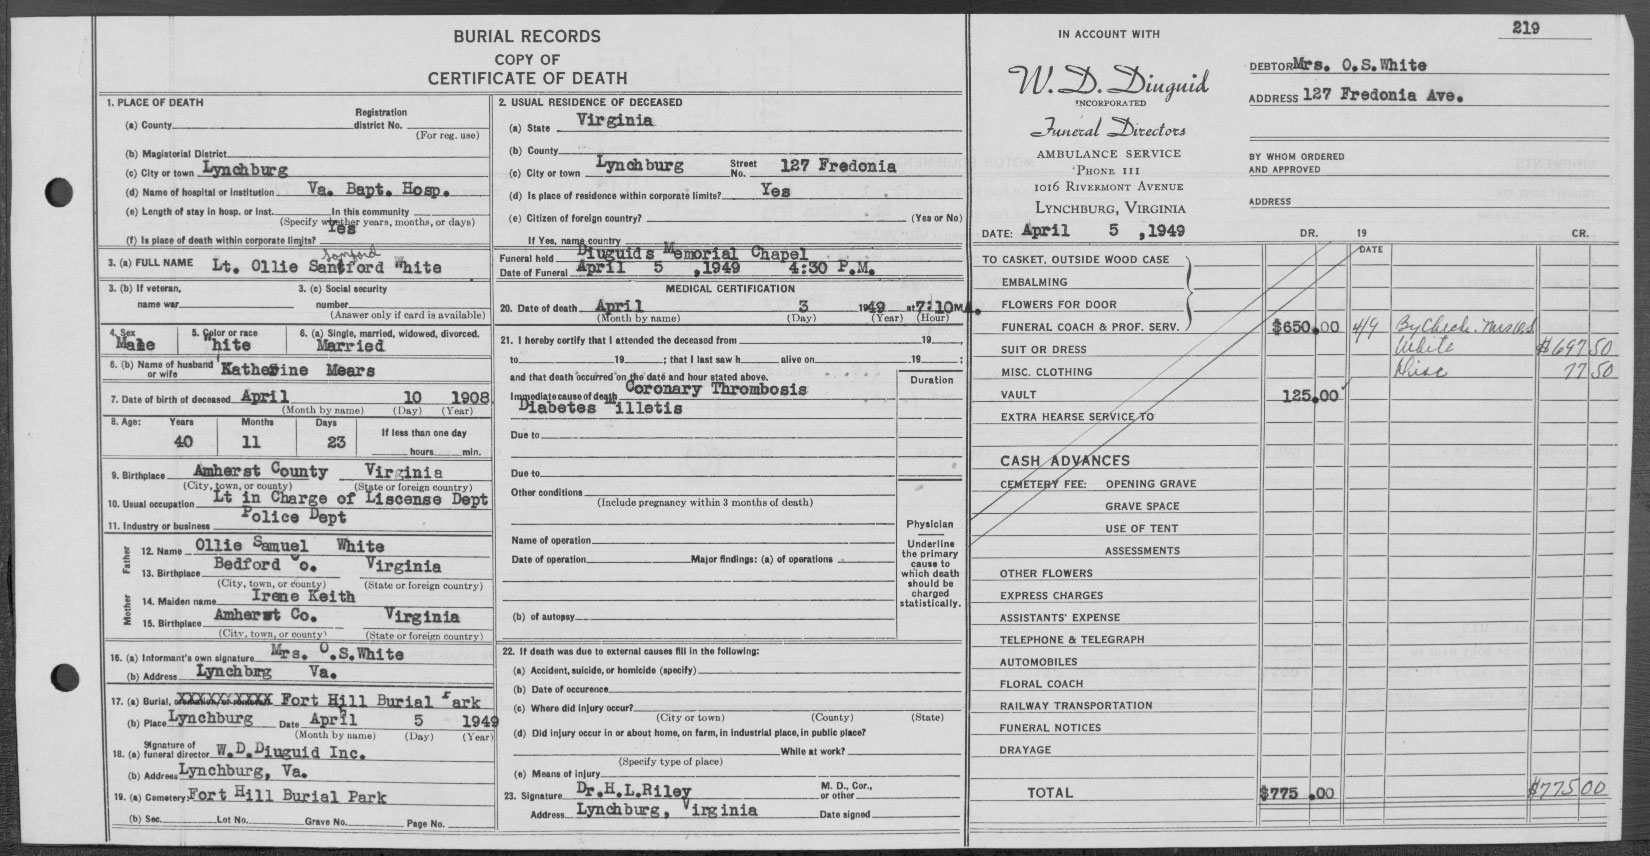 BURIAL RECORDS
COPY OF
CERTIFICATE OF DEATH
1. PLACE OF DEATH
(a) County Registration district No.
(For reg. use)
(b) Magisterial District
(c) City or town Lynchburg
(d) Name of hospital or institution Va. Bapt. Hosp.
(e) Length of stay in hosp. or inst. In this community
(Specify whether years, months, or days)
(f) Is place of death within corporate limits? Yes
3. (a) FULL NAME Lt. Ollie Santford White
Sanford
3. (b) If veteran, name war
3. (c) Social security number
(Answer only if card is available)
4. Sex Male
5. Color or race White
6. (a) Single, married, widowed, divorced. Married
6. (b) Name of husband or wife Katherine Mears
7. Date of birth of deceased April 10 1908
(Month by name) (Day) (Year)
8. Age: Years Months Days If less than one day
40 11 23 hours min.
9. Birthplace Amherst County Virginia
(City, town, or county) (State or foreign country)
10. Usual occupation Lt in Charge of Liscense Dept
11. Industry or business Police Dept
Father
12. Name Ollie Samuel White
13. Birthplace Bedford Co. Virginia
(City, town, or county) (State or foreign country)
Mother
14. Maiden name Irene Keith
15. Birthplace Amherst Co. Virginia
(City, town, or county) (State or foreign country)
16. (a) Informant's own signature Mrs. O.S.White
(b) Address Lynchbrg Va.
17. (a) Burial, cremation, or removal XXXXXXXXXX Fort Hill Burial Park
(b) Place Lynchburg Date April 5 1949
(Month by name) (Day) (Year)
18. (a) Signature of funeral director W.D.Diuguid Inc.
(b) Address Lynchburg, Va.
19. (a) Cemetery: Fort Hill Burial Park
(b) Sec. Lot No. Grave No. Page No.
2. USUAL RESIDENCE OF DECEASED
(a) State Virginia
(b) County
(c) City or town Lynchburg Street No. 127 Fredonia
(d) Is place of residence within corporate limits? Yes
(e) Citizen of foreign country? (Yes or No)
If Yes, name country
Funeral held Diuguids Memorial Chapel
Date of Funeral April 5 ,1949 4:30 P.M.
MEDICAL CERTIFICATION
20. Date of death April 3 1949 at 7:10 M
(Month by name) (Day) (Year) (Hour)
21. I hereby certify that I attended the deceased from 19 ,
to 19 ; that I last saw h alive on 19 ;
and that death occurred on the date and hour stated above.
Duration
Immediate cause of death Coronary Thrombosis
Diabetes Milletis
Due to
Due to
Other conditions
(Include pregnancy within 3 months of death)
Name of operation
Date of operation Major findings: (a) of operations
(b) of autopsy
Physician
Underline the primary cause to which death should be charged statistically.
22. If death was due to external causes fill in the following:
(a) Accident, suicide, or homicide (specify)
(b) Date of occurence
(c) Where did injury occur?
(City or town) (County) (State)
(d) Did injury occur in or about home, on farm, in industrial place, in public place?
While at work?
(Specify type of place)
(e) Means of injury
23. Signature Dr.H.L.Riley M. D., Cor., or other
Address Lynchburg, Virginia Date signed
219
IN ACCOUNT WITH
W. D. Diuguid
INCORPORATED
Funeral Directors
AMBULANCE SERVICE
'PHONE 111
1016 RIVERMONT AVENUE
LYNCHBURG, VIRGINIA
DATE: April 5 ,1949
DEBTOR Mrs. O.S.White
ADDRESS 127 Fredonia Ave.
BY WHOM ORDERED AND APPROVED
ADDRESS
DR. 19 CR.
DATE
TO CASKET, OUTSIDE WOOD CASE
EMBALMING
FLOWERS FOR DOOR
FUNERAL COACH & PROF. SERV. $650.00 4/9 By Check. Mrs O.S.
SUIT OR DRESS White $697 50
MISC. CLOTHING Disc 77 50
VAULT 125.00
EXTRA HEARSE SERVICE TO
CASH ADVANCES
CEMETERY FEE: OPENING GRAVE
GRAVE SPACE
USE OF TENT
ASSESSMENTS
OTHER FLOWERS
EXPRESS CHARGES
ASSISTANTS' EXPENSE
TELEPHONE & TELEGRAPH
AUTOMOBILES
FLORAL COACH
RAILWAY TRANSPORTATION
FUNERAL NOTICES
DRAYAGE
TOTAL $775.00 $775 00